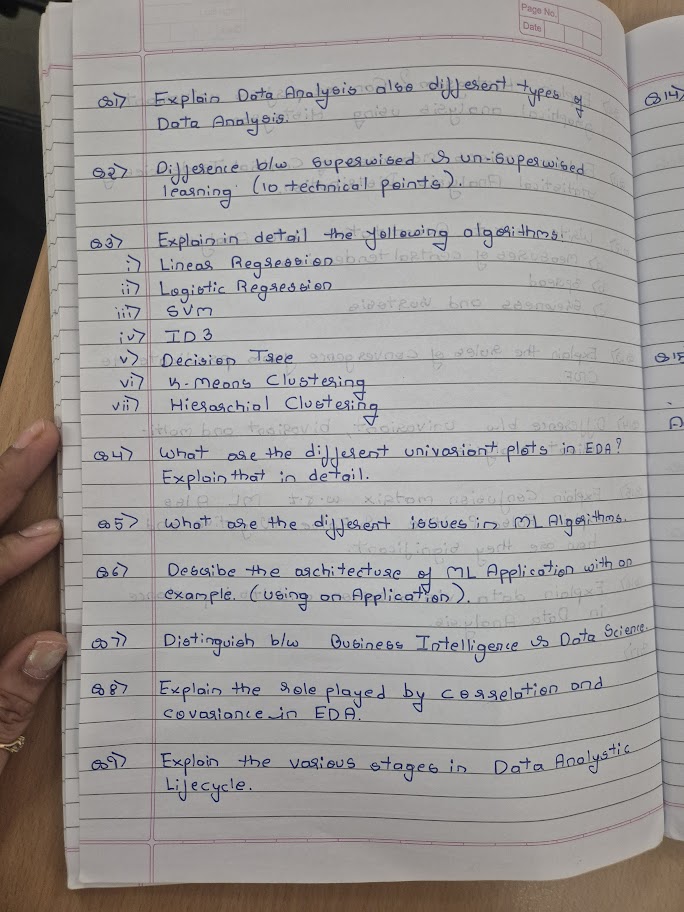 Page No.
Date
Q1) Explain Data Analysis also different types of
Data Analysis.
Q2) Difference b/w Superwised & un-superwised
learning. (10 technical points).
Q3) Explain in detail the following algorithms.
i) Linear Regression
ii) Logistic Regression
iii) SVM
iv) ID3
v) Decision Tree
vi) K-Means Clustering
vii) Hierarchial Clustering
Q4) What are the different univariant plots in EDA?
Explain that in detail.
Q5) What are the different issues in ML Algorithms.
Q6) Describe the architecture of ML Application with an
example. (using an Application).
Q7) Distinguish b/w Business Intelligence & Data Science.
Q8) Explain the role played by correlation and
covariance in EDA.
Q9) Explain the various stages in Data Analystic
Lifecycle.
Q14)